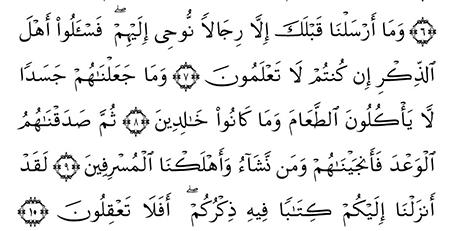 ﴿٦﴾ وَمَا أَرْسَلْنَا قَبْلَكَ إِلَّا رِجَالًا نُّوحِي إِلَيْهِمْ ۖ فَسْـَٔلُوا۟ أَهْلَ
ٱلذِّكْرِ إِن كُنتُمْ لَا تَعْلَمُونَ ﴿٧﴾ وَمَا جَعَلْنَـٰهُمْ جَسَدًا
لَّا يَأْكُلُونَ ٱلطَّعَامَ وَمَا كَانُوا۟ خَـٰلِدِينَ ﴿٨﴾ ثُمَّ صَدَقْنَـٰهُمُ
ٱلْوَعْدَ فَأَنجَيْنَـٰهُمْ وَمَن نَّشَآءُ وَأَهْلَكْنَا ٱلْمُسْرِفِينَ ﴿٩﴾ لَقَدْ
أَنزَلْنَا إِلَيْكُمْ كِتَـٰبًا فِيهِ ذِكْرُكُمْ ۖ أَفَلَا تَعْقِلُونَ ﴿١٠﴾